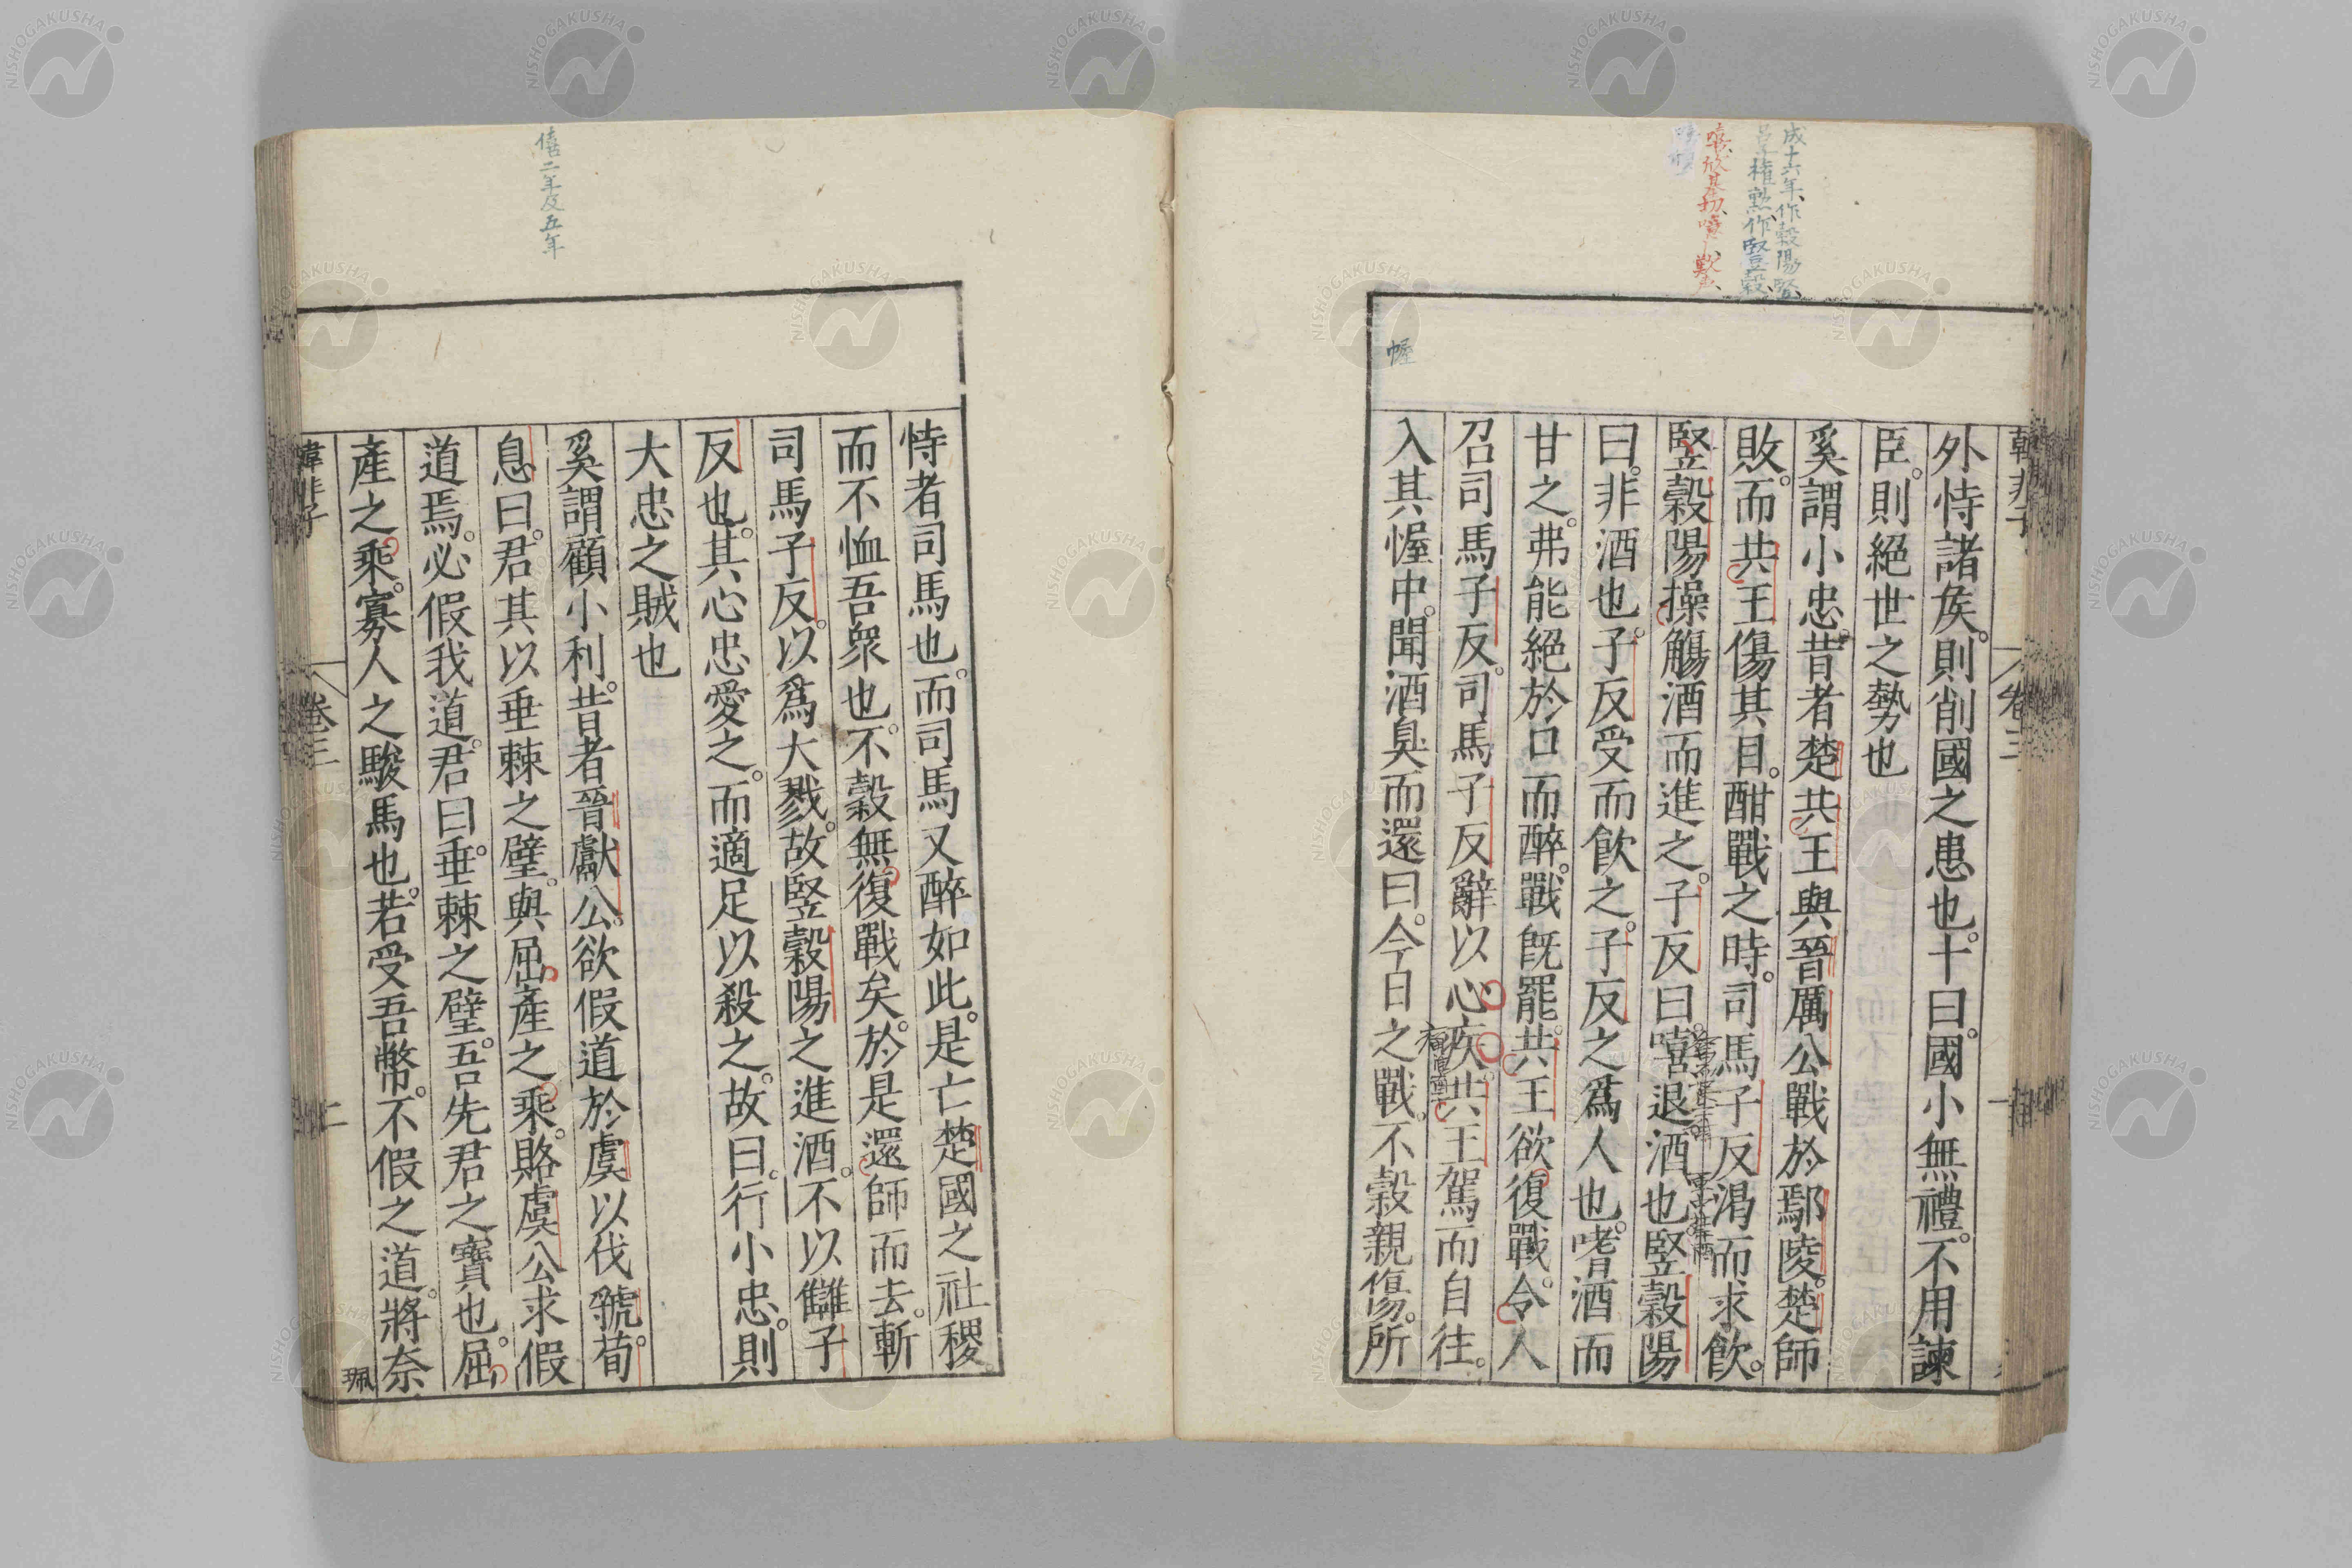 成十六年、作穀陽竪、
呂權勲作竪穀
韓非子
卷三
外恃諸矦。則削國之患也。十曰。國小無禮。不用諫
臣。則絕世之勢也
奚謂小忠。昔者楚共王與晉厲公戰於鄢陵。楚師
敗。而共王傷其目。酣戰之時。司馬子反渴而求飲。
竪穀陽操觴酒而進之。子反曰嘻退酒也竪穀陽
曰。非酒也。子反受而飲之。子反之爲人也。嗜酒而
甘之。弗能絕於口而醉。戰旣罷。共王欲復戰。令人
召司馬子反。司馬子反辭以心疾。共王駕而自往。
幄
入其幄中。聞酒臭而還曰。今日之戰。不穀親傷。所
恃者司馬也。而司馬又醉如此。是亡楚國之社稷
而不恤吾衆也。不穀無復戰矣。於是還師而去。斬
司馬子反。以爲大戮。故竪穀陽之進酒。不以讎子
反也。其心忠愛之。而適足以殺之。故曰。行小忠。則
大忠之賊也
僖二年及五年
奚謂顧小利。昔者晉獻公。欲假道於虞以伐虢。荀
息曰。君其以垂棘之璧。與屈產之乘。賂虞公求假
道焉。必假我道。君曰。垂棘之璧。吾先君之寶也。屈
產之乘。寡人之駿馬也。若受吾幣。不假之道。將奈
韓非子
卷三
二
珮
NISHOGAKUSHA